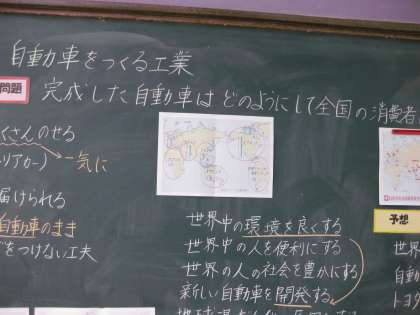 自動車をつくる工業
問題
完成した自動車は どのようにして全国の消費者
くさんのせる
リアカー) 一気に
届けられる
自動車のまま
をつけない工夫
世界中の環境を良くする
世界中の人を便利にする
世界の人の社会を豊かにする
新しい自動車を開発する
予想
世界
自動
トヨ